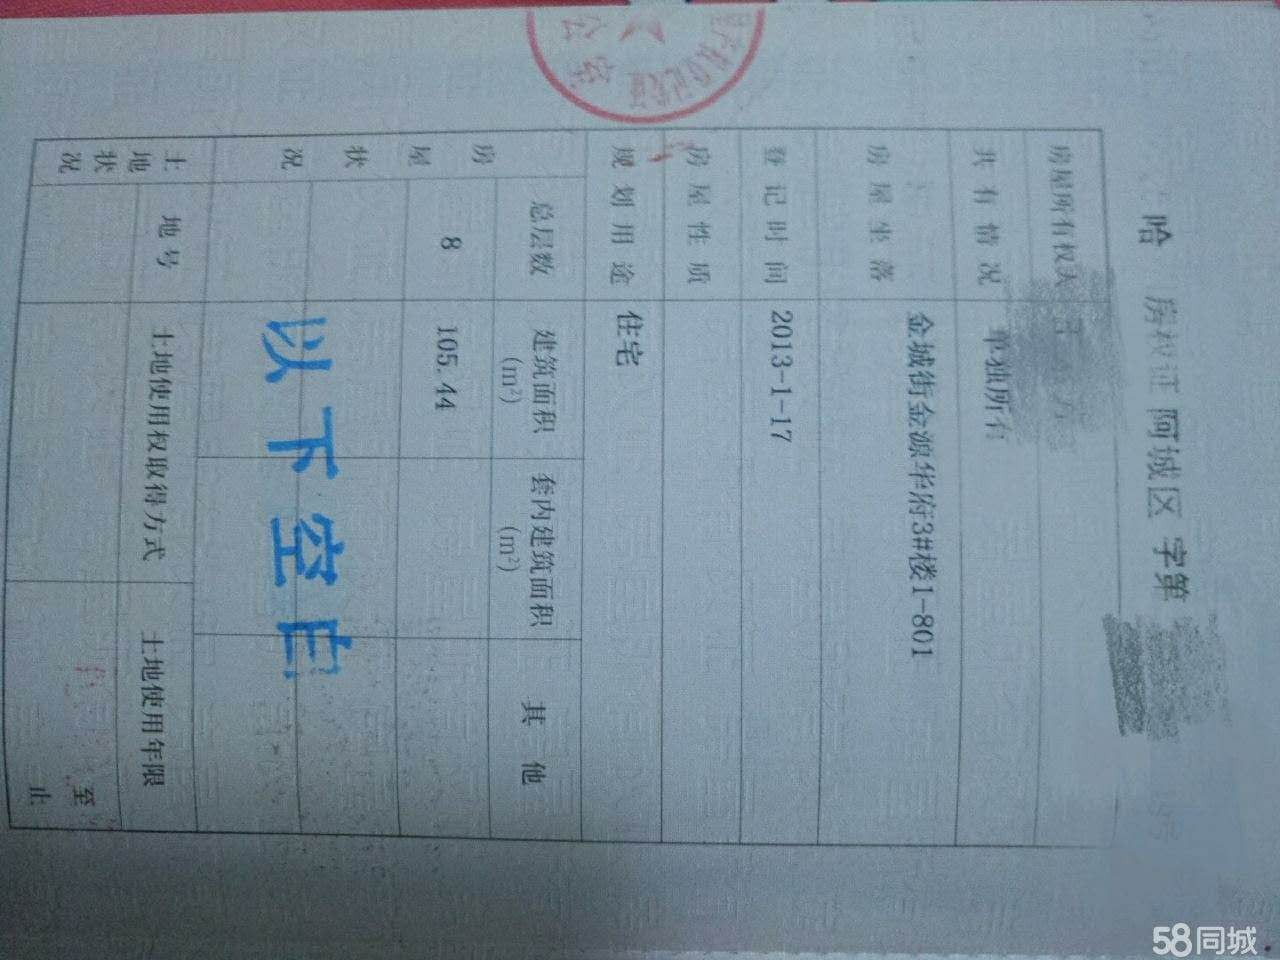 哈 房权证 阿城区 字第 号
房屋所有权人
共有情况 单独所有
房屋坐落 金城街金源华府3#楼1-801
登记时间 2013-1-17
房屋性质
规划用途 住宅
房屋状况 总层数 建筑面积(m²) 套内建筑面积(m²) 其他
8 105.44
以下空白
土地状况 地号 土地使用权取得方式 土地使用年限
至 止
58同城